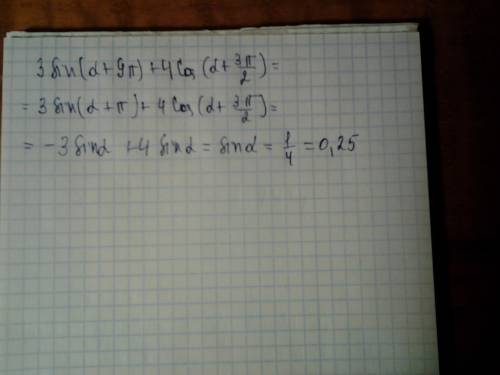 3 sin(α+9π)+4cos(α+3π/2)=
= 3 sin(α+π)+4cos(α+3π/2)=
= -3sinα +4 sinα = sinα = 1/4 = 0,25